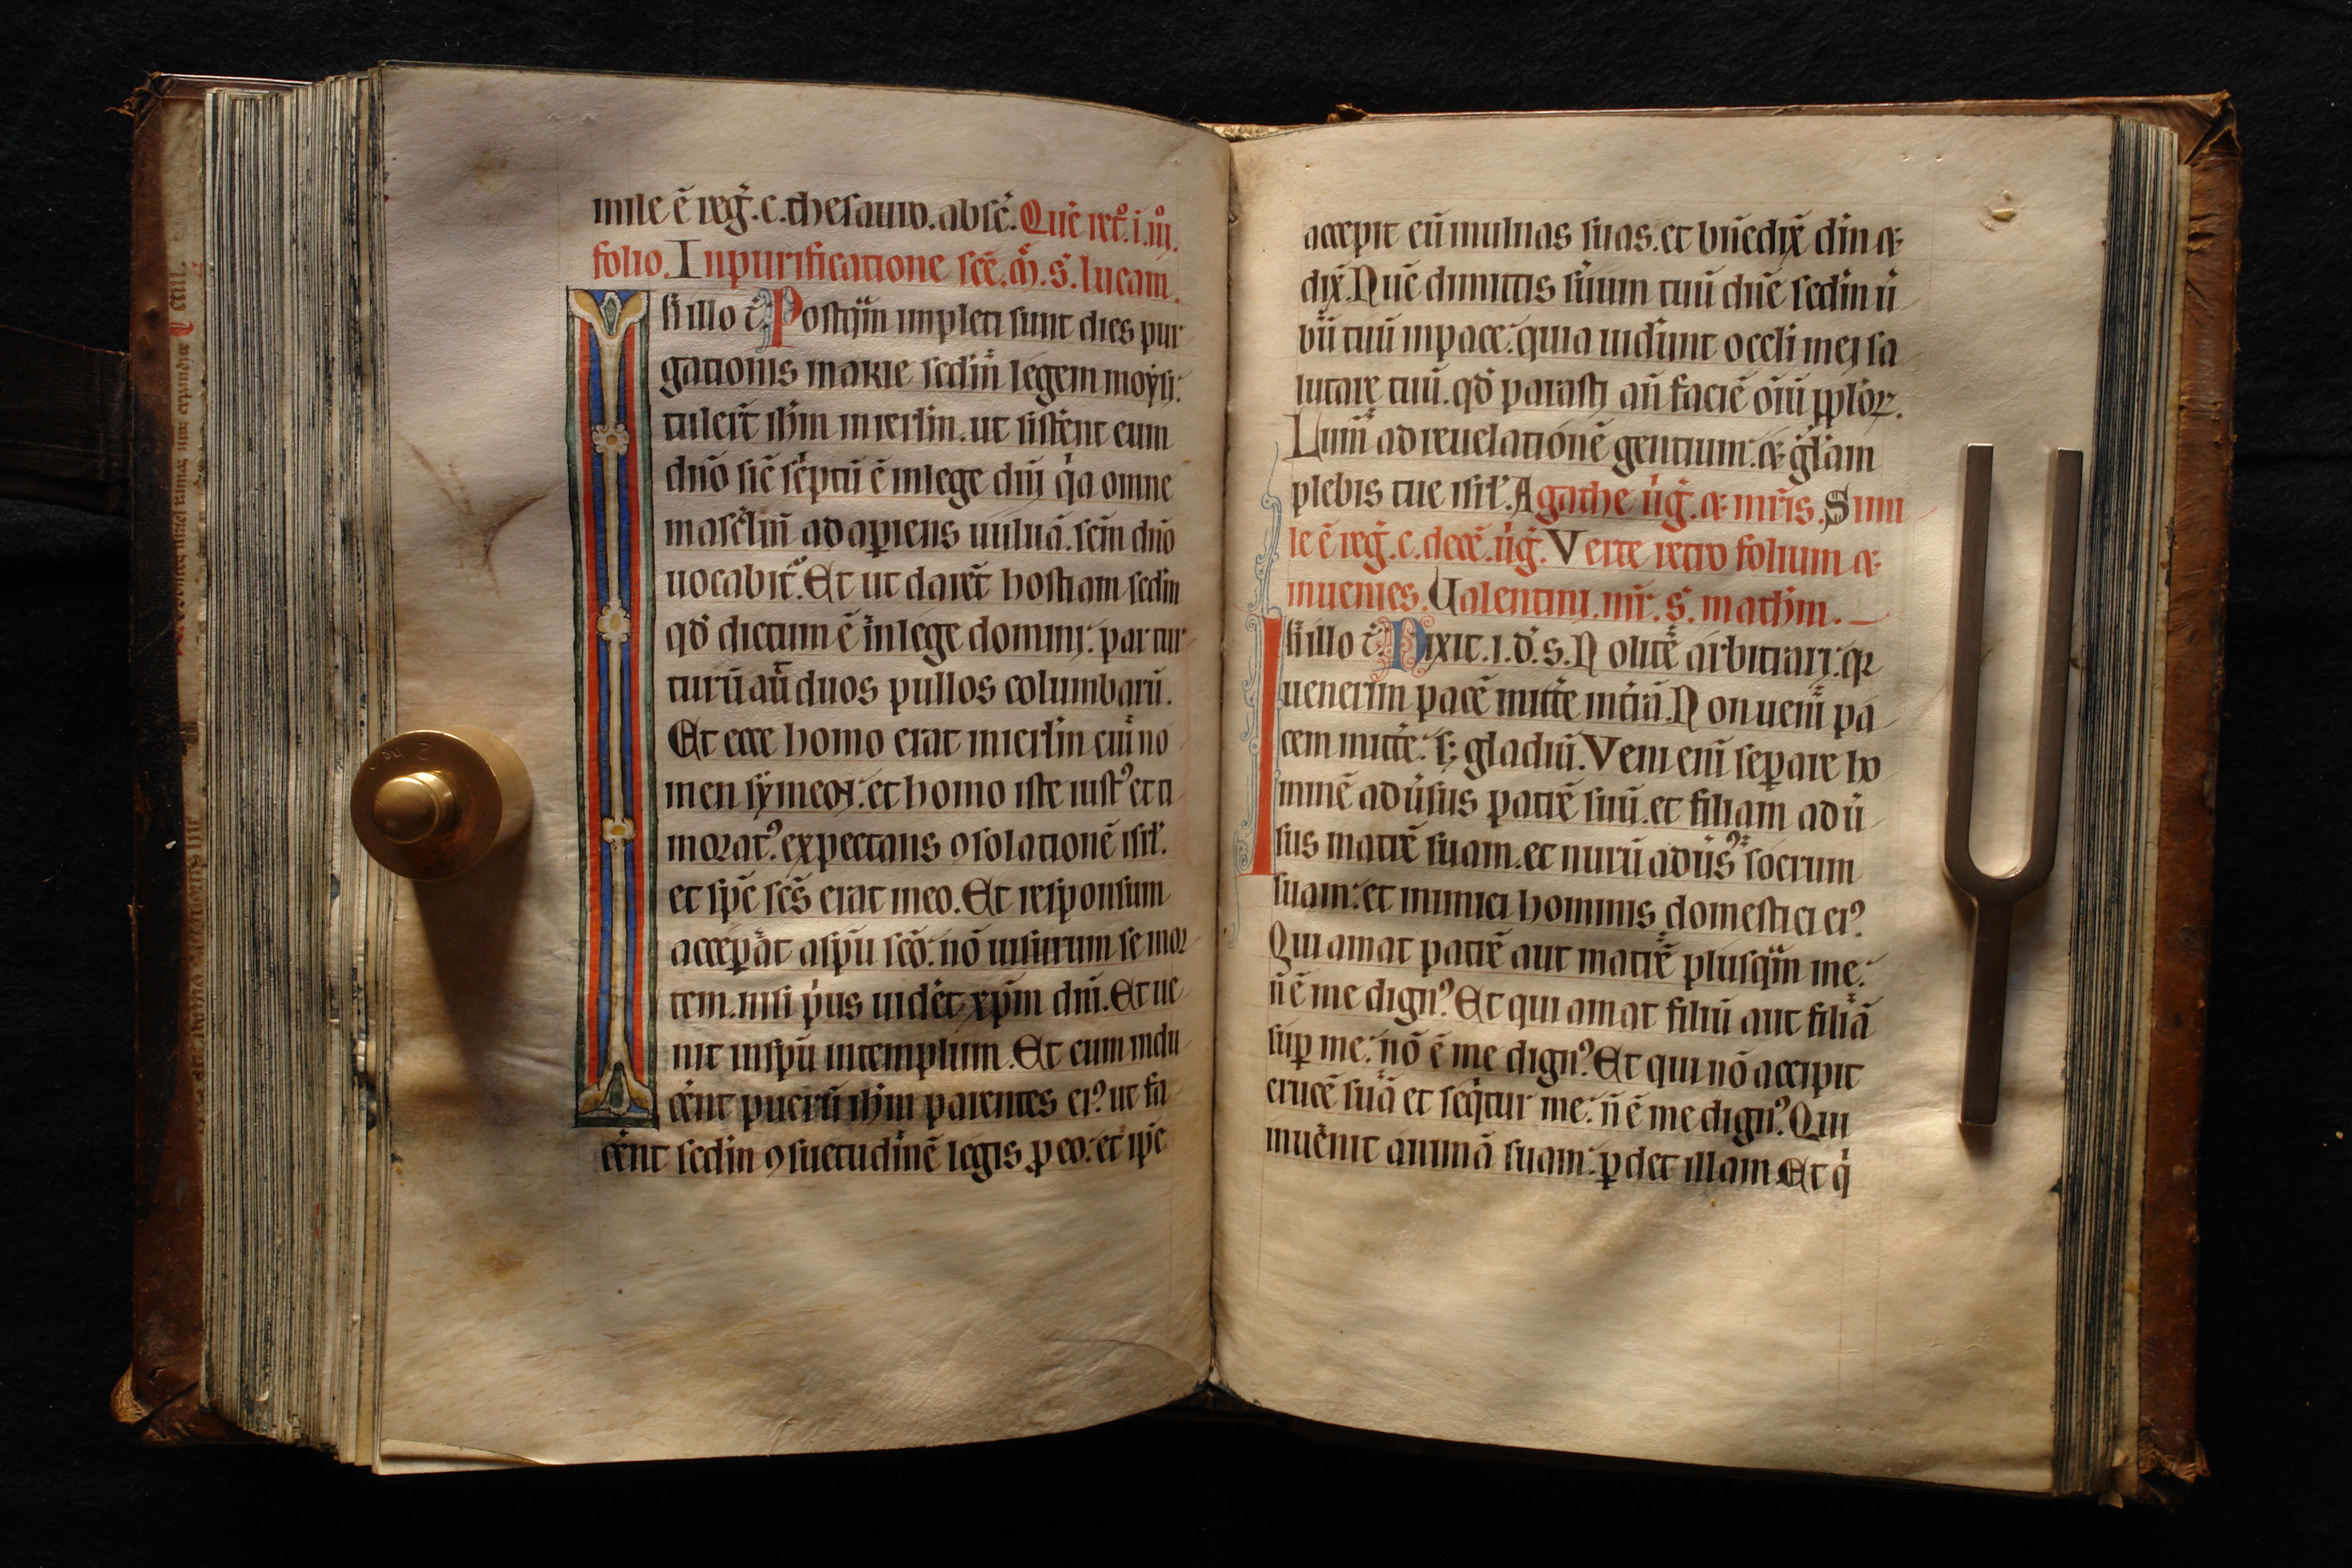 mile ē reg̃. c. thesauro. absc̃. Que ret̊. i. iiii̊.
folio. In purificatione sc̃e. M̃. S. lucam.
In illo t̃. Postq̃m impleti sunt dies pur
gationis marie sedm̃ legem moẏsi.
tuler̃t ih̃m in ierl̃m. ut sistẽnt eum
dño sic̃ sc̃ptũ ē in lege dñi q̃a omne
masc̃liñ adap̱iens uuluā. sc̃m dño
uocabit᷑. Et ut darẽt hostiam sedm̃
qď dictum ē in lege domini. par tur
turū aū duos pullos columbarū.
Et ecce homo erat in ierl̃m cui no
men sẏmeon. et homo iste iustꝰ et ti
moratꝰ. expectans ꝯsolationē isrl̃.
et sp̃c sc̃s̃ erat in eo. Et responsum
accep̱at a sp̃u sc̃o. nō uisurum se mor
tem. nisi p̃us uidẽt xp̃m dñi. Et ue
nit in sp̃u in templum. Et cum indu
cẽnt puerū ih̃m parentes eiꝰ ut fa
cẽnt sedm̃ ꝯsuetudinē legis p̱ eo. et ip̃e
accepit eū in ulnas suas. et bñedix̃ dm̃ ⁊
dix̃. Nūc dimittis s̃uum tuū dñe sedm̃ ũ
bū tuū in pace. quia uid̃unt oc̃li mei sa
lutare tuū. qď parasti añ faciē oĩū pp̃l̃oꝝ.
Lum̃ ad reuelationē gentium. ⁊ gl̃am
plebis tue isrl̃. Agathe ũg̃. ⁊ mr̃is. Simi
le ē reg̃. c. dece. ũg̃. Verte retro folium ⁊
inuenies. Valentini. mr̃. S. math̃m.
In illo t̃. Dixit. i. d̃. s. Nolite arbitrari. q̃
uenerim pacē mitt̃e in t̃rā. Non ueni pa
cem mitt̃e. sꝫ gladiū. Veni eni sep̱are ho
minē adũsus patrē suū. et filiam adũ
sus matrē suam. et nurū adũsꝰ socrum
suam. et inimici hominis domestici eiꝰ.
Qui amat patrē aut matrē plusq̃m me.
ñ ē me dignꝰ. Et qui amat filiū aut filiā
sup̱ me. nō ē me dignꝰ. Et qui nō accipit
crucē suā et seq̃tur me. ñ ē me dignꝰ. Qui
inuẽnit animā suam. p̱det illam. Et q̃